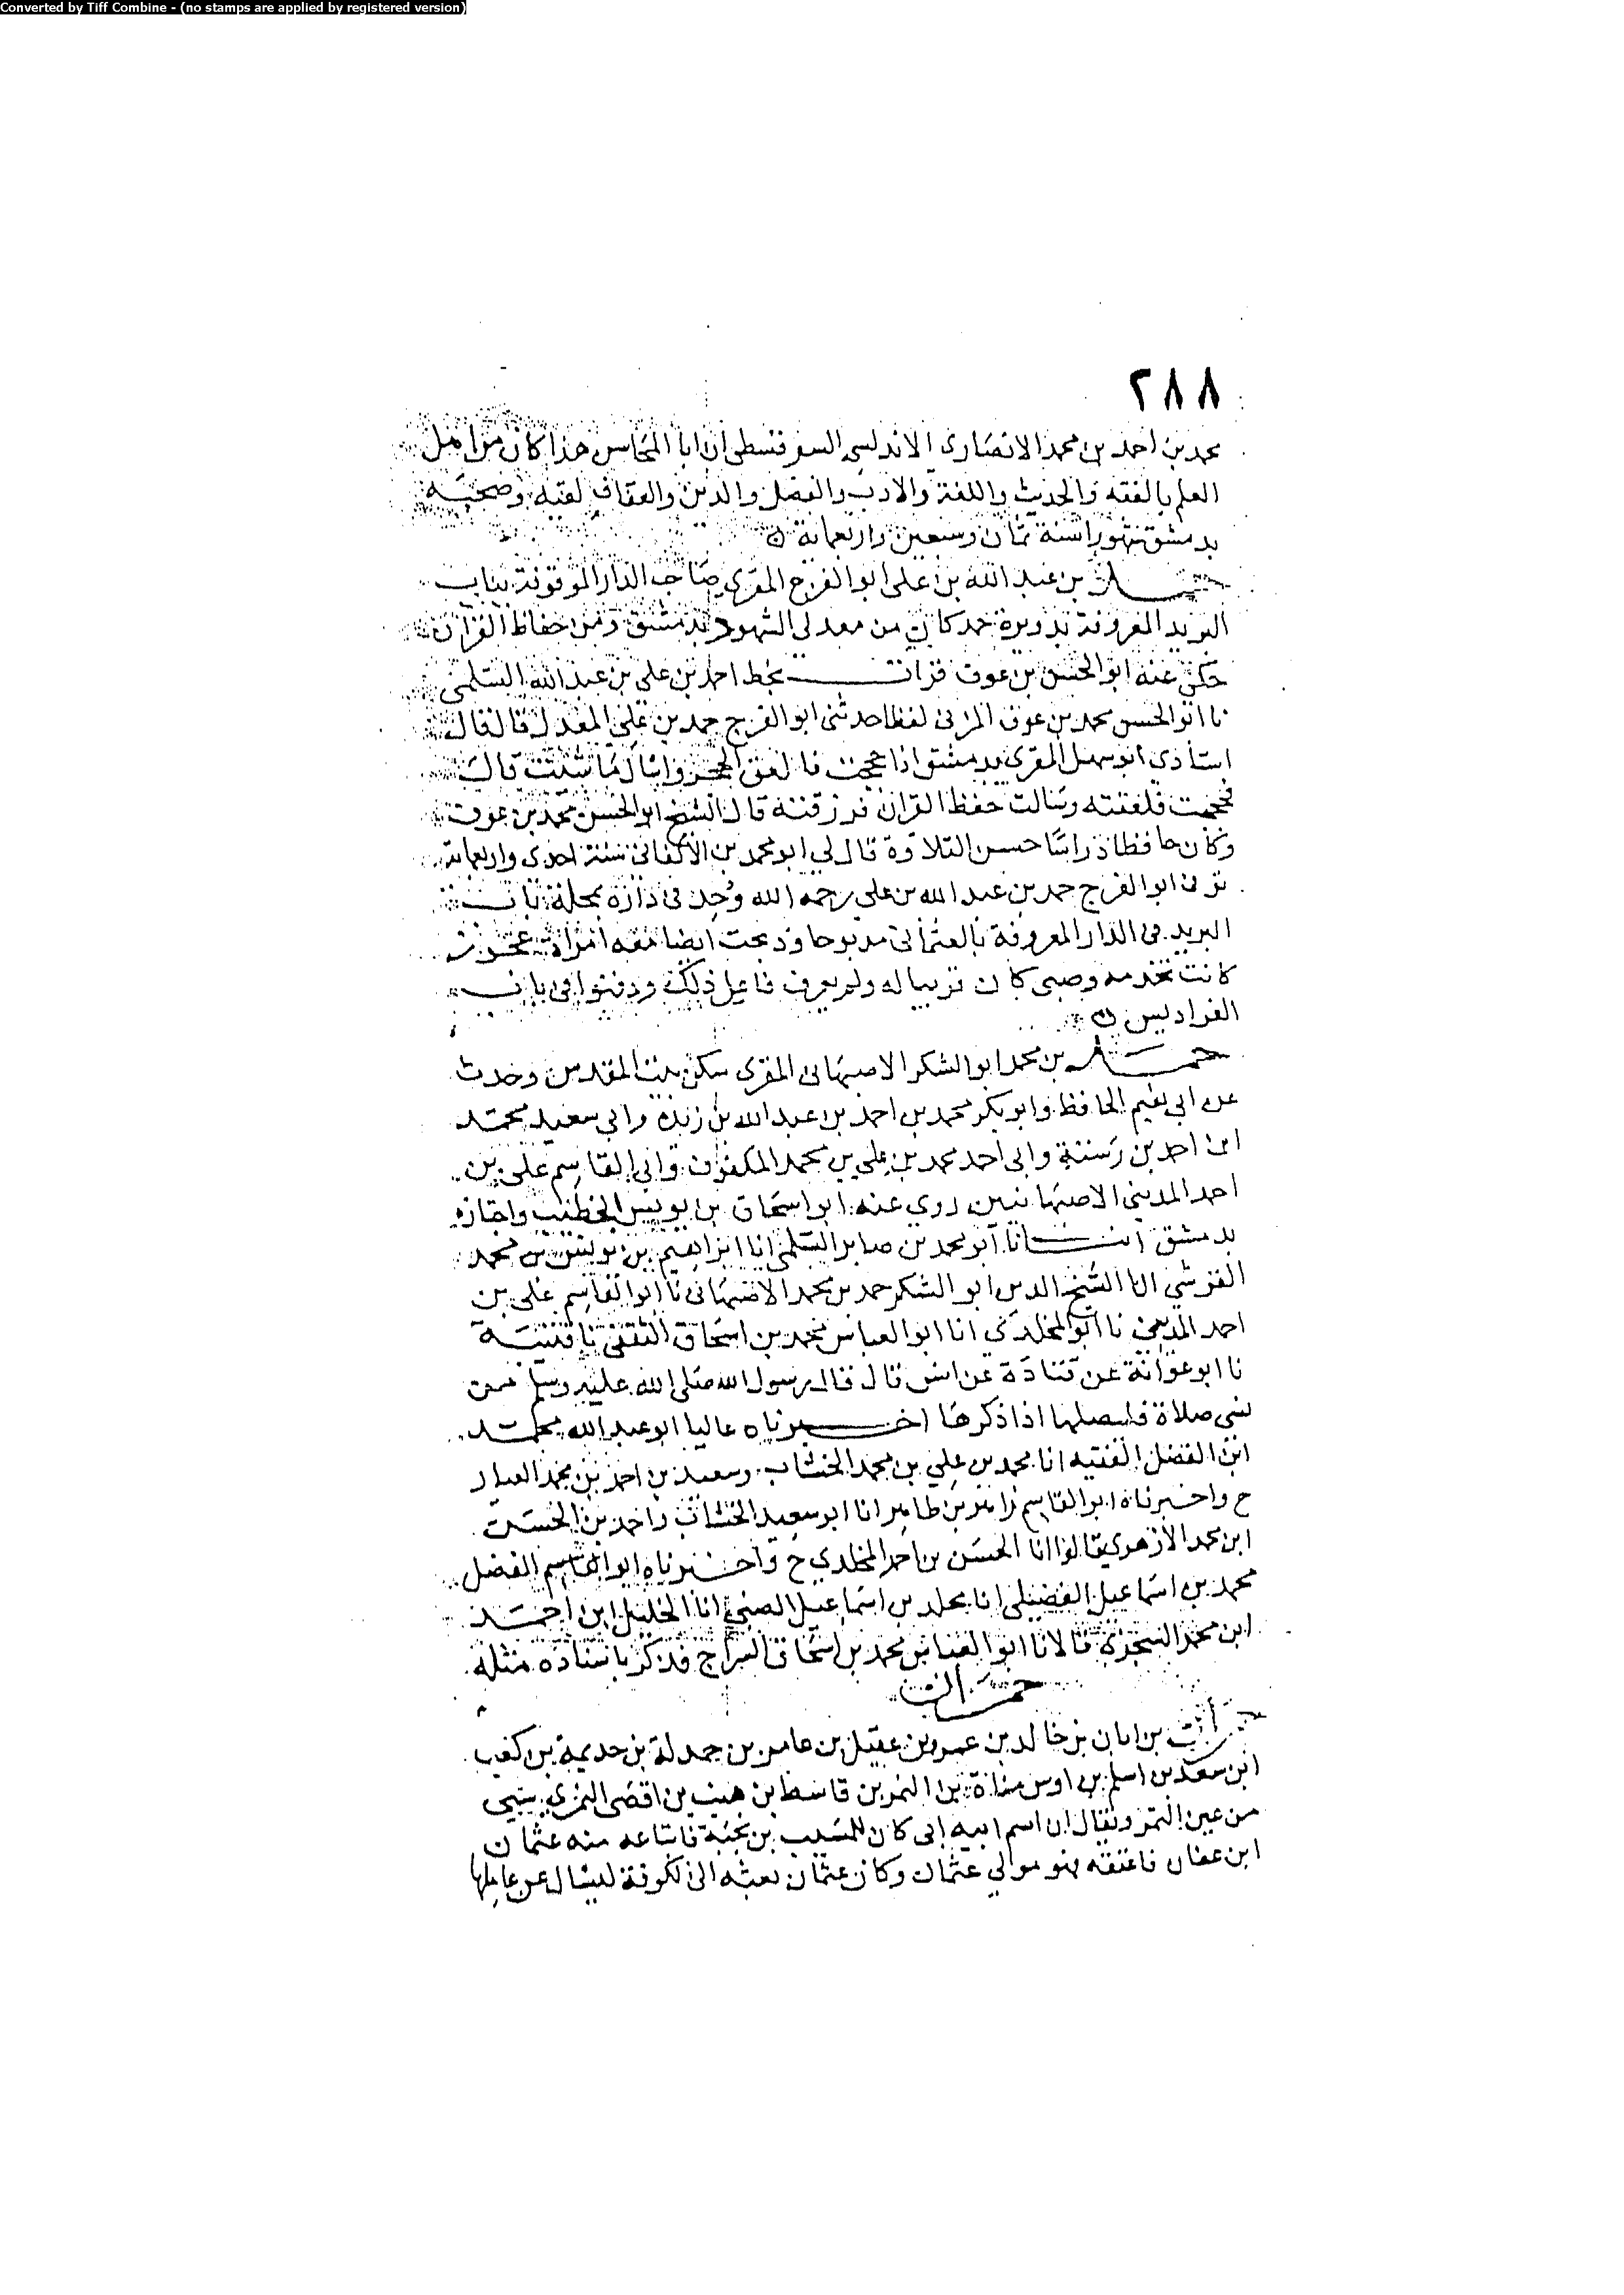 Converted by Tiff Combine - (no stamps are applied by registered version)
٢٨٨
محمد بن احمد بن محمد الانصاري الاندلسي السرقسطي ان ابا المحاسن هذا كان من اهل
العلم بالفقه والحديث واللغة والادب والفضل والدين والعفاف لقيه وصحبه
بدمشق شهورا سنة ثمان وسبعين واربعماية
حمد بن عبد الله بن علي ابو الفرج المقري صاحب الدار الموقوفة بباب
البريد المعروفة بدويرة حمد كان من معدلي الشهود بدمشق ومن حفاظ القران
حكى عنه ابو الحسن بن عوف قرات بخط احمد بن علي بن عبد الله السلمي
نا ابو الحسن محمد بن عوف المزني لفظا حدثني ابو الفرج حمد بن علي المعدل قال قال
استاذي ابو سهل المقري بدمشق اذا حججت فالعق الحجر واسال ما شئت قال
فحججت فلعقته وسالت حفظ القران فرزقته قال الشيخ ابو الحسن محمد بن عوف
وكان حافظا دراسا حسن التلاوة قال لي ابو محمد بن الاكفاني سنة احدى واربعماية
توفي ابو الفرج حمد بن عبد الله بن علي رحمه الله وجد في داره بمحلة باب
البريد في الدار المعروفة بالعثماني مذبوحا وذبحت ايضا معه امراة عجوز
كانت تخدمه وصبي كان قريبا له ولم يعرف فاعل ذلك ودفنوا في باب
الفراديس
حمد بن محمد ابو الشكر الاصبهاني المقري سكن بيت المقدس وحدث
عن ابي نعيم الحافظ وابو بكر محمد بن احمد بن عبد الله بن زيده وابي سعيد محمد
ابن احمد بن رسته وابي احمد محمد بن علي بن محمد المكفوف وابي القاسم علي بن
احمد المديني الاصبهانيين روى عنه ابو اسحاق بن يونس الخطيب واجتازه
بدمشق انبانا ابو محمد بن صابر السلمي انا ابراهيم بن يونس بن محمد
القرشي انا الشيخ الدين ابو الشكر حمد بن محمد الاصبهاني نا ابو القاسم علي بن
احمد المديني نا ابو المخلدي انا ابو العباس محمد بن اسحاق الثقفي نا قتيبة
نا ابو عوانة عن قتادة عن انس قال قال رسول الله صلى الله عليه وسلم من
نسي صلاة فليصلها اذا ذكرها اخبرناه عاليا ابو عبد الله محمد
ابن الفضل الفقيه انا محمد بن علي بن محمد الخشاب وسعيد بن احمد بن محمد العيار
ح واخبرناه ابو القاسم زاهر بن طاهر انا ابو سعيد الخشاب واحمد بن الحسن
ابن محمد الازهري قالوا انا الحسن بن احمد المخلدي ح واخبرناه ابو القاسم الفضل
محمد بن اسماعيل الفضيلي انا محلم بن اسماعيل الضبي انا الخليل ابن احمد
ابن محمد السجزي قالا نا ابو العباس محمد بن اسحاق السراج فذكر باسناده مثله
حمران
بن ابان بن خالد بن عمرو بن عقيل بن عامر بن جندلة بن جديمة بن كعب
ابن سعد بن اسلم بن اوس مناة بن النمر بن قاسط بن هنب بن اقصى النمري سبي
من عين التمر ويقال ان اسم ابيه ابي كان للمسيب بن نجبة فابتاعه منه عثمان
ابن عفان فاعتقه فهو مولى عثمان وكان عثمان بعثه الى الكوفة ليسال عن عاملها